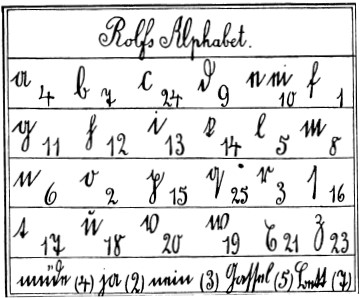 Rolfs Alphabet.
a 4 b 7 c 24 d 9 e ei 10 f 1
g 11 h 12 i 13 k 14 l 5 m 8
n 6 o 2 p 15 q 25 r 3 s 16
t 17 u 18 v 20 w 19 x 21 z 23
müde (4) ja (2) nein (3) Bett (7)